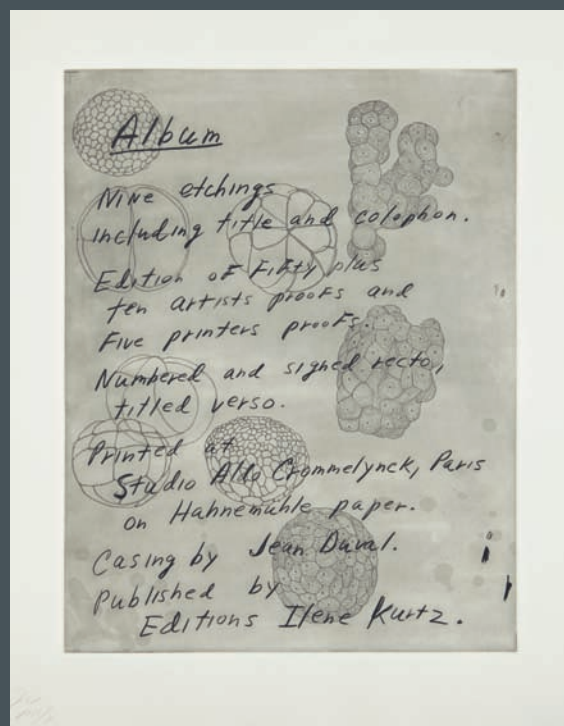 Album
Nine etchings
including title and colophon.
Edition of Fifty plus
ten artists proofs and
Five printers proofs
Numbered and signed recto,
titled verso.
Printed at
Studio Aldo Crommelynck, Paris
on Hahnemühle paper.
Casing by Jean Duval.
Published by
Editions Ilene Kurtz.